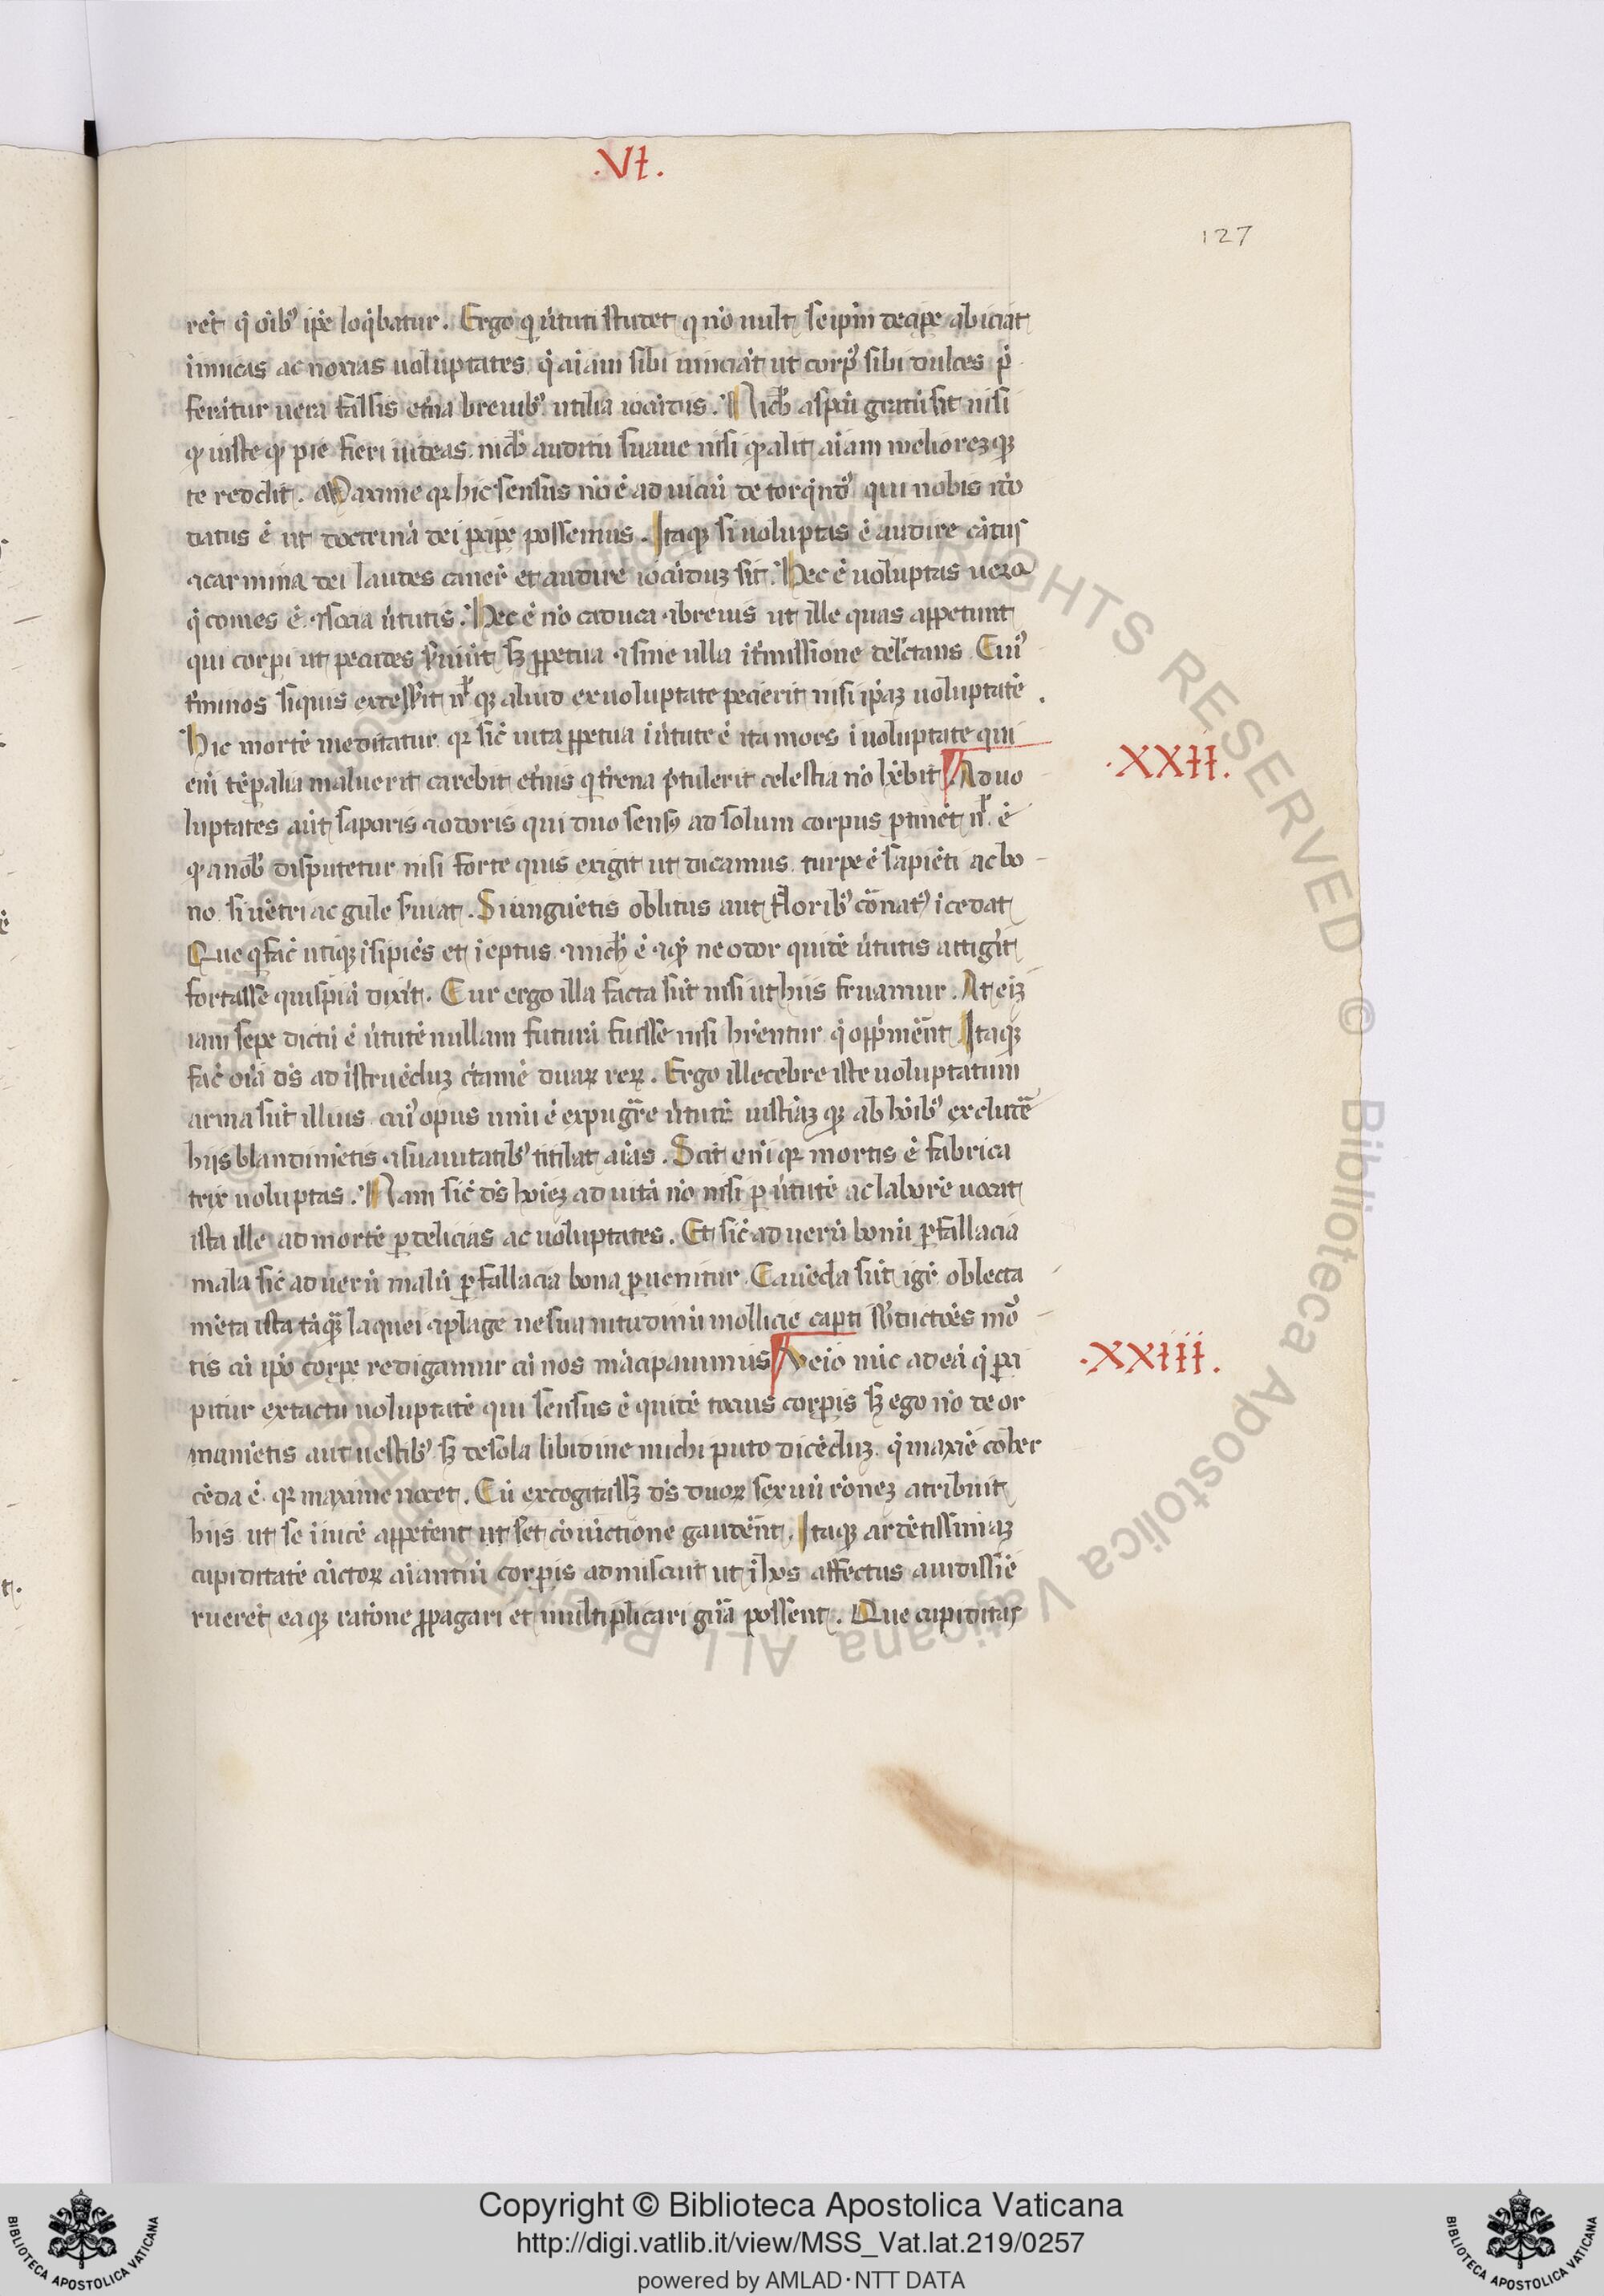 .VI.
127
ret q̇ oib᷒ ipe loq̇batur. Ergo q u̇tuti studet q nō uult seipm̄ decipe abiciat
inimicas ac noxias uoluptates q̇ aiam sibi uinciāt ut corp᷒ sibi dulces p̄
ferātur uera falsis etn̄a breuib᷒ utilia iocūdis. Nichł aspcū gratū sit nisi
ꝙ iuste ꝙ pie fieri uideas. nichł auditu suaue nisi ꝙ alit aīam meliorēꝫ qꝫ
te reddit. Maxime qꝛ hic sensus nō ē ad uiciū detorq̄nd᷒ qui nobis iō
datus ē ut doctrinā dei pcipe possemus. Itaqꝫ si uoluptas ē audire cātus
⁊ carmina dei laudes caner̄ et audire iocūduꝫ sit. Hec ē uoluptas uera
q̇ comes ē ⁊ socia u̇tutis. Hec ē nō caduca ⁊ breuis ut ille quas appetunt
qui corpi ut pecudes s̄uiūt sꝫ ꝑpetua ⁊ sine ulla it̄missione delctans Cui᷒
t̄minos siquis excess̄it nł qꝫ aliud ex uoluptate pecierit nisi ip̄aꝫ uoluptatē.
Hic mortē meditatur qꝛ sic̄ uita ꝑpetua i u̇tute ē ita mors i uoluptate qui
eni tēpalia maluerit carebit et̄nis q t̄rena p̄tulerit celestia nō hēbit Ad uo
.XXII.
luptates aūt saporis ⁊ odoris qui duo sens᷒ ad solum corpus ꝑtinēt nł ē
ꝙ a nob᷒ disputetur nisi forte quis exigit ut dicamus turpe ē sapiēti ac bo
no si uētri ac gule s̄uiat. Si unguētis oblitus aut floribꝰ cōnat᷒ icedat
Que q fac̄ utiqꝫ isipiēs et ieptus ⁊ nichł ē ⁊ quē ne odor quidē u̇tutis attigit
fortasse quispiā dixit. Cur ergo illa facta sūt nisi ut hiis fruamur. At eiꝫ
iam sepe dictū ē u̇tutē nullam futurā fuisse nisi hr̄entur q̇ opp̄mēnt Itaqꝫ
fac̄ oiā ds̄ ad istruēduꝫ c̄tamē duaꝝ reꝝ. Ergo illecebre iste uoluptatum
arma sūt illius cui᷒ opus unū ē expugr̄e u̇tutē iustiāꝫ qꝫ ab hoibꝰ excludē
hiis blandimētis ⁊ suauitatibꝰ titilat aīas. Scit eni qꝛ mortis ē fabrica
trix uoluptas. Nam sic̄ ds̄ hoieꝫ ad uitā nō nisi p u̇tutē ac laborē uocat
ista ille ad mortē p delicias ac uoluptates. Et sic̄ ad uerū bonū ꝑ fallacia
mala sic̄ ad uerū malū ꝑ fallacia bona ꝑuenitur. Cauēda sūt igr̄ oblecta
mēta ista tāqꝫ laquei ⁊ plage ne suauitudinū mollicie capti sb̄ dictōes mō
tis cū ipō corpe redigamur cū nos mācipauimus Venio nūc ad eā q̇ ꝑci
.XXIII.
pitur ex tactu uoluptatē qui sensus ē quidē tocius corpis sꝫ ego nō de or
namētis aut uestibꝰ sꝫ de sola libidine michi puto dicēduꝫ. q̇ maxīe coher
cēda ē. qꝛ maxime nocet. Cū excogitassꝫ ds̄ duoꝝ sexuū rōneꝫ atribuit
hiis ut se inuicē appetēnt ut set cōiūctione gaudēnt. Itaqꝫ ardētissimaꝫ
cupiditatē cūctoꝝ aīantiū corpis admiscuit ut i hos affectus auidissie
ruerēt eaqꝫ ratōne ꝓpagari et multiplicari gn̄a possent. Que cupiditas
Copyright © Biblioteca Apostolica Vaticana
http://digi.vatlib.it/view/MSS_Vat.lat.219/0257
powered by AMLAD·NTT DATA